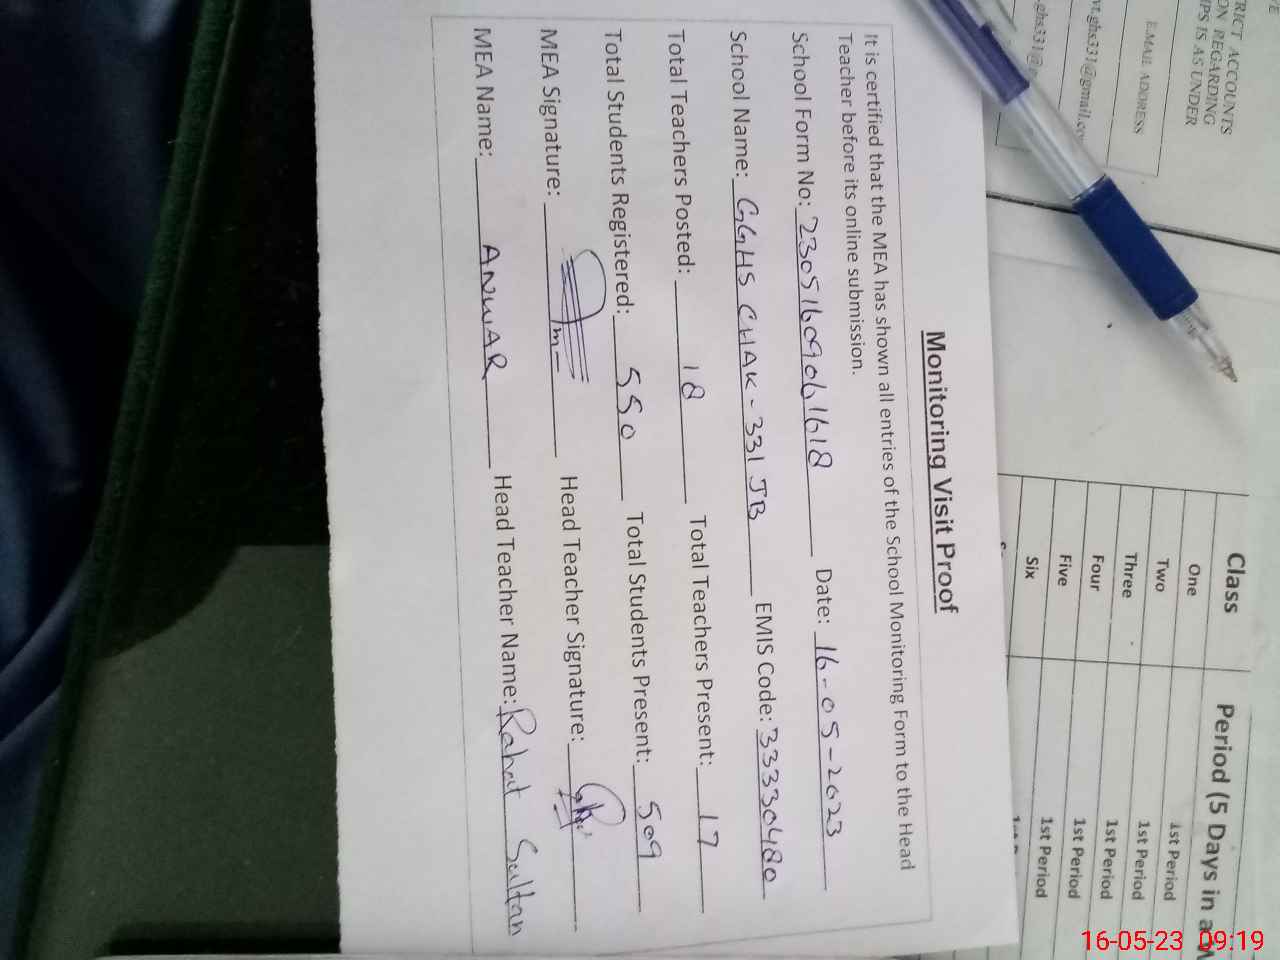 Monitoring Visit Proof
It is certified that the MEA has shown all entries of the School Monitoring Form to the Head
Teacher before its online submission.
School Form No: 2305160906 1618 Date: 16-05-2023
School Name: GGHS CHAK-331 JB EMIS Code: 33330480
Total Teachers Posted: 18 Total Teachers Present: 17
Total Students Registered: 550 Total Students Present: 509
MEA Signature: Head Teacher Signature:
MEA Name: ANWAR Head Teacher Name: Rahat Sultan
RICT ACCOUNTS
ON REGARDING
IPS IS AS UNDER
EMAIL ADDRESS
ghs331@gmail.co
ghs331@
Class Period (5 Days in a
One 1st Period
Two 1st Period
Three 1st Period
Four 1st Period
Five 1st Period
Six
16-05-23 09:19